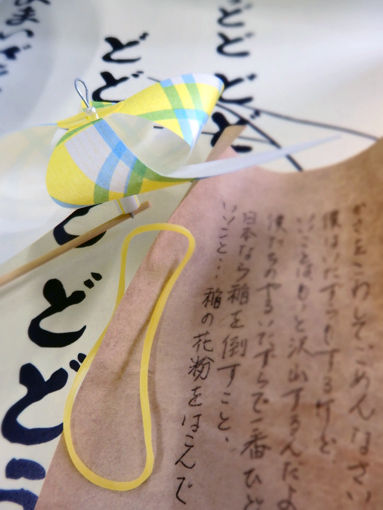 かさをこわしてごめんなさい
僕はいたずらもするけど
いいことはもっと沢山するんだよ
僕たちのするいたずらで一番ひど
日本なら稲を倒すこと、
いいこと…稲の花粉をはこんで
どどど
どどど
どどど